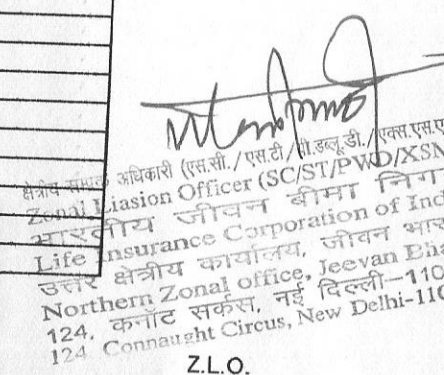 क्षेत्रीय अधिकारी (एस.सी./एस.टी/
Zonal Liasion Officer (SC/ST/PWD/XSM
भारतीय जीवन बीमा निगम
Life Insurance Corporation of Ind
उत्तर क्षेत्रीय कार्यालय, जीवन भार
Northern Zonal office, Jeevan Bha
124, कनॉट सर्कस, नई दिल्ली-110
124 Connaught Circus, New Delhi-110
Z.L.O.